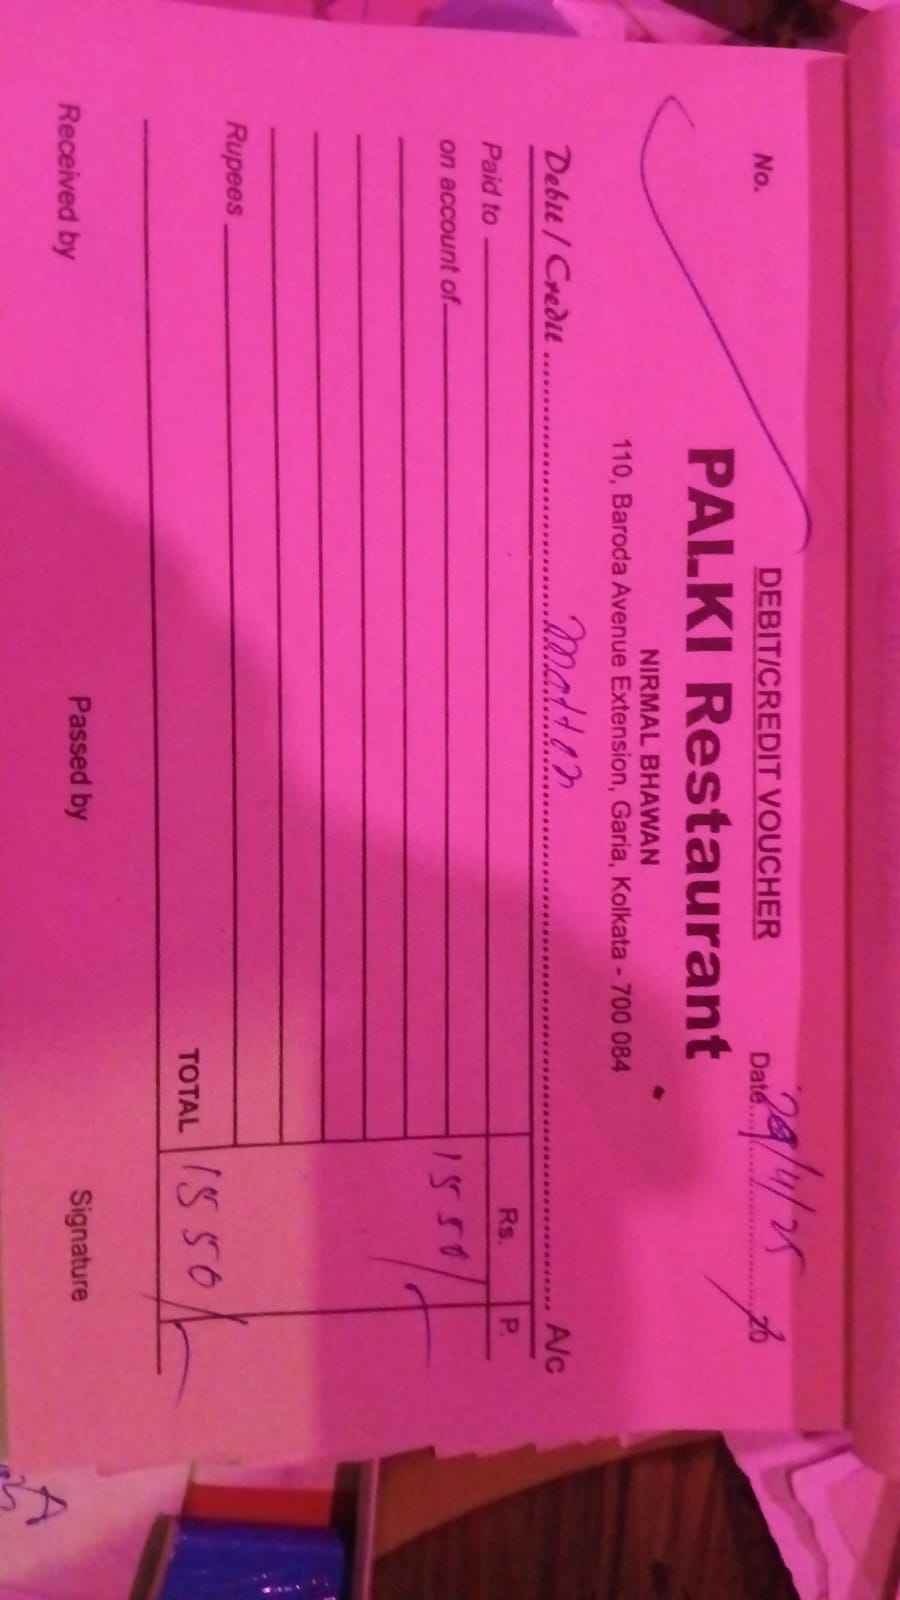 DEBIT/CREDIT VOUCHER
No. Date 29/4/25 20
PALKI Restaurant
NIRMAL BHAWAN
110, Baroda Avenue Extension, Garia, Kolkata - 700 084
Debit / Credit Motton A/c
Paid to Rs. P.
on account of 1550/-
Rupees
TOTAL 1550/-
Received by Passed by Signature